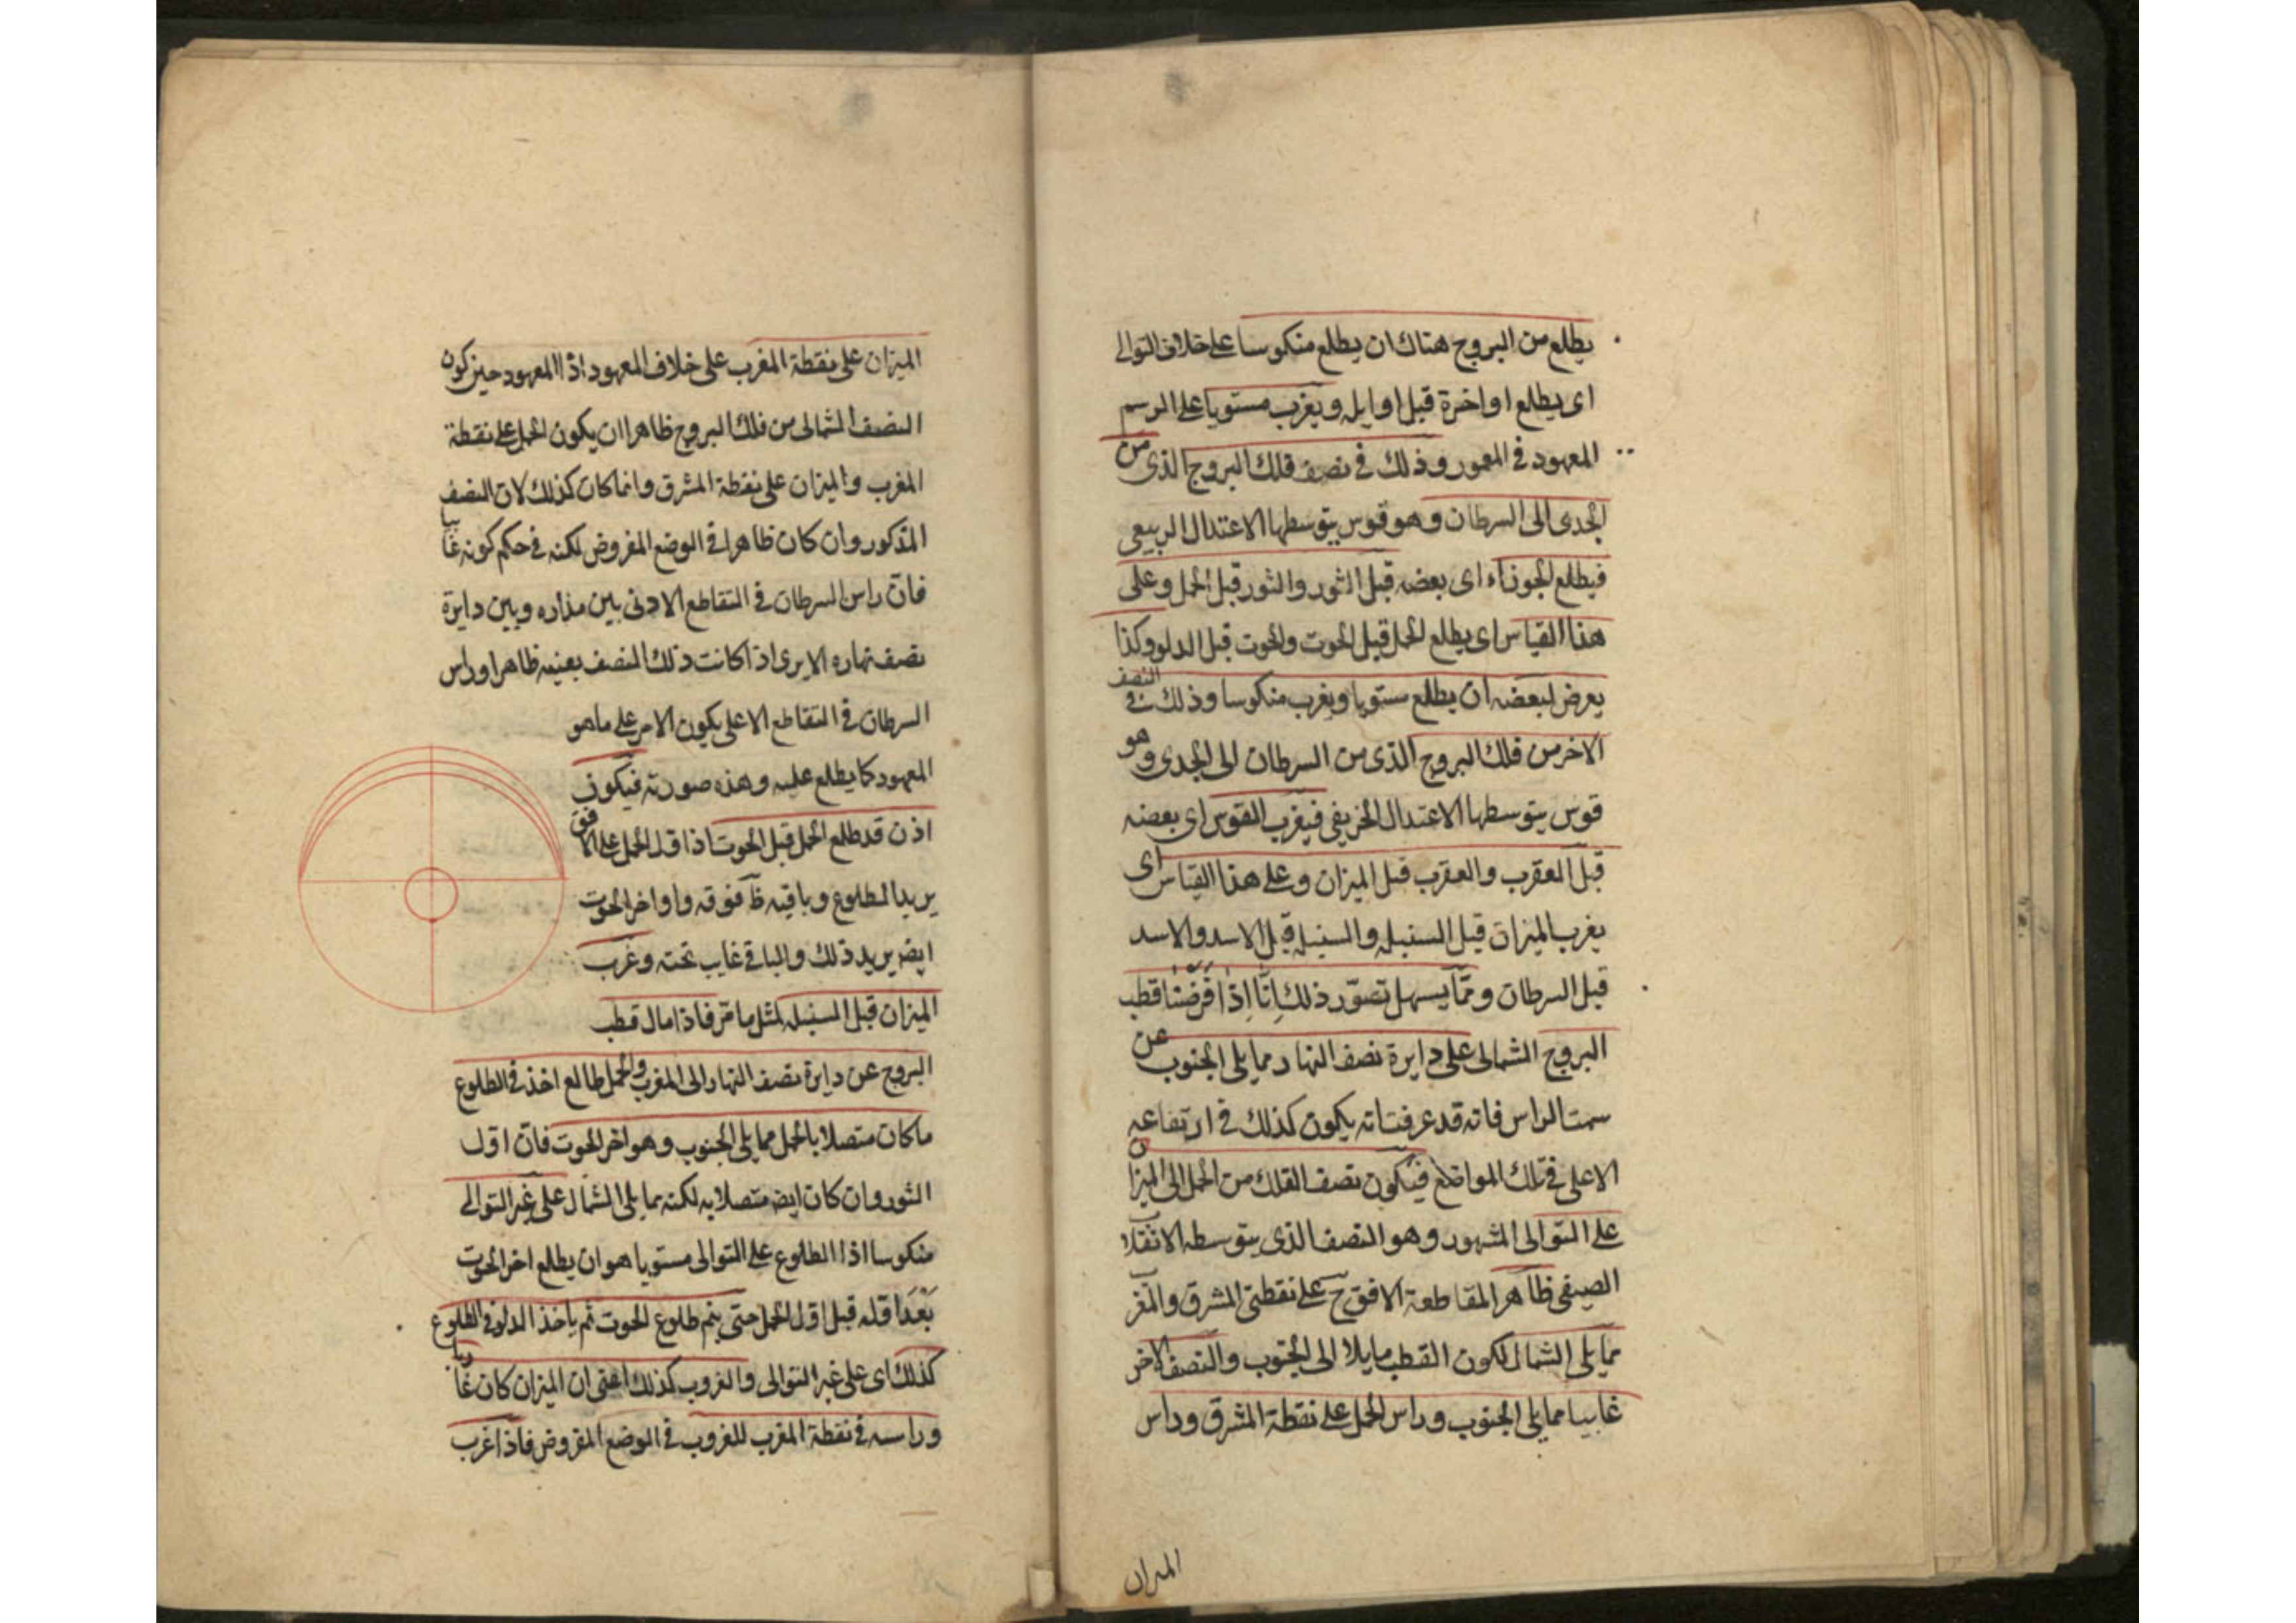 يطلع من البروج هناك ان يطلع منكوسا على خلاف التوالى
اى يطلع اواخرة قبل اوايله ويغرب مستويا على الرسم
المعهود فى المعمور وذلك فى نصف فلك البروج الذى من
الجدى الى السرطان وهو قوس يتوسطها الاعتدال الربيعى
فيطلع الجوزاء اى بعضه قبل الثور والثور قبل الحمل وعلى
هذا القياس اى يطلع الحمل قبل الحوت والحوت قبل الدلو وكذا
يعرض لبعضه ان يطلع مستويا ويغرب منكوسا وذلك فى النصف
الاخر من فلك البروج الذى من السرطان الى الجدى وهو
قوس يتوسطها الاعتدال الخريفى فيغرب القوس اى بعضه
قبل العقرب والعقرب قبل الميزان وعلى هذا القياس اى
يغرب الميزان قبل السنبله والسنبله قبل الاسد والاسد
قبل السرطان وممّا يسهل تصوّر ذلك انّا اذا فرضنا قطب
البروج الشمالى على دايرة نصف النهار مما يلى الجنوب عن
سمت الراس فانه قد عرفت انه يكون كذلك فى ارتفاعه
الاعلى فى تلك المواضع فيكون نصف الفلك من الحمل الى الميزان
على التوالى المشهور وهو النصف الذى يتوسطه الانقلاب
الصيفى ظاهر المقاطعة الافق ح على نقطتى المشرق والمغرب
مما يلى الشمال لكون القطب مايلا الى الجنوب والنصف الاخر
غايبا مما يلى الجنوب وراس الحمل على نقطة المشرق وراس
الميزان
الميزان على نقطة المغرب على خلاف المعهود اذا المعهود حين كون
النصف الشمالى من فلك البروج ظاهرا ان يكون الحمل على نقطة
المغرب والميزان على نقطة المشرق وانما كان كذلك لان النصف
المذكور وان كان ظاهرا فى الوضع المفروض لكنه فى حكم كونه غايبا
فانّ راس السرطان فى التقاطع الادنى بين مداره وبين دايرة
نصف نهاره الا يرى اذا كانت ذلك النصف بعينه ظاهرا وراس
السرطان فى التقاطع الاعلى يكون الامر على ما هو
المعهود كا يطلع عليه وهذه صورته فيكون
اذن قد طلع الحمل قبل الحوت اذ اوّل الحمل على الافق
يريد الطلوع وباقيه ظ فوقه واواخر الحوت
ايضه يريد ذلك والباقى غايب تحته وغرب
الميزان قبل السنبله لمثل ما مّر فاذا مال قطب
البروج عن دايرة نصف النهار الى المغرب والحمل طالع اخذ فى الطلوع
ما كان متصلا بالحمل مما يلى الجنوب وهو اخر الحوت فانّ اوّل
الثور وان كان ايضه متصلا به لكنه مما يلى الشمال على غير التوالى
منكوسا اذا الطلوع على التوالى مستويا هو ان يطلع اخر الحوت
بَعْدَ اوّله قبل اوّل الحمل حتى يتم طلوع الحوت ثم ياخذ الدلو فى الطلوع
كذلك اى على غير التوالى والغروب كذلك اعنى ان الميزان كان غاربا
وراسه فى نقطة المغرب للغروب فى الوضع المفروض فاذا غرب